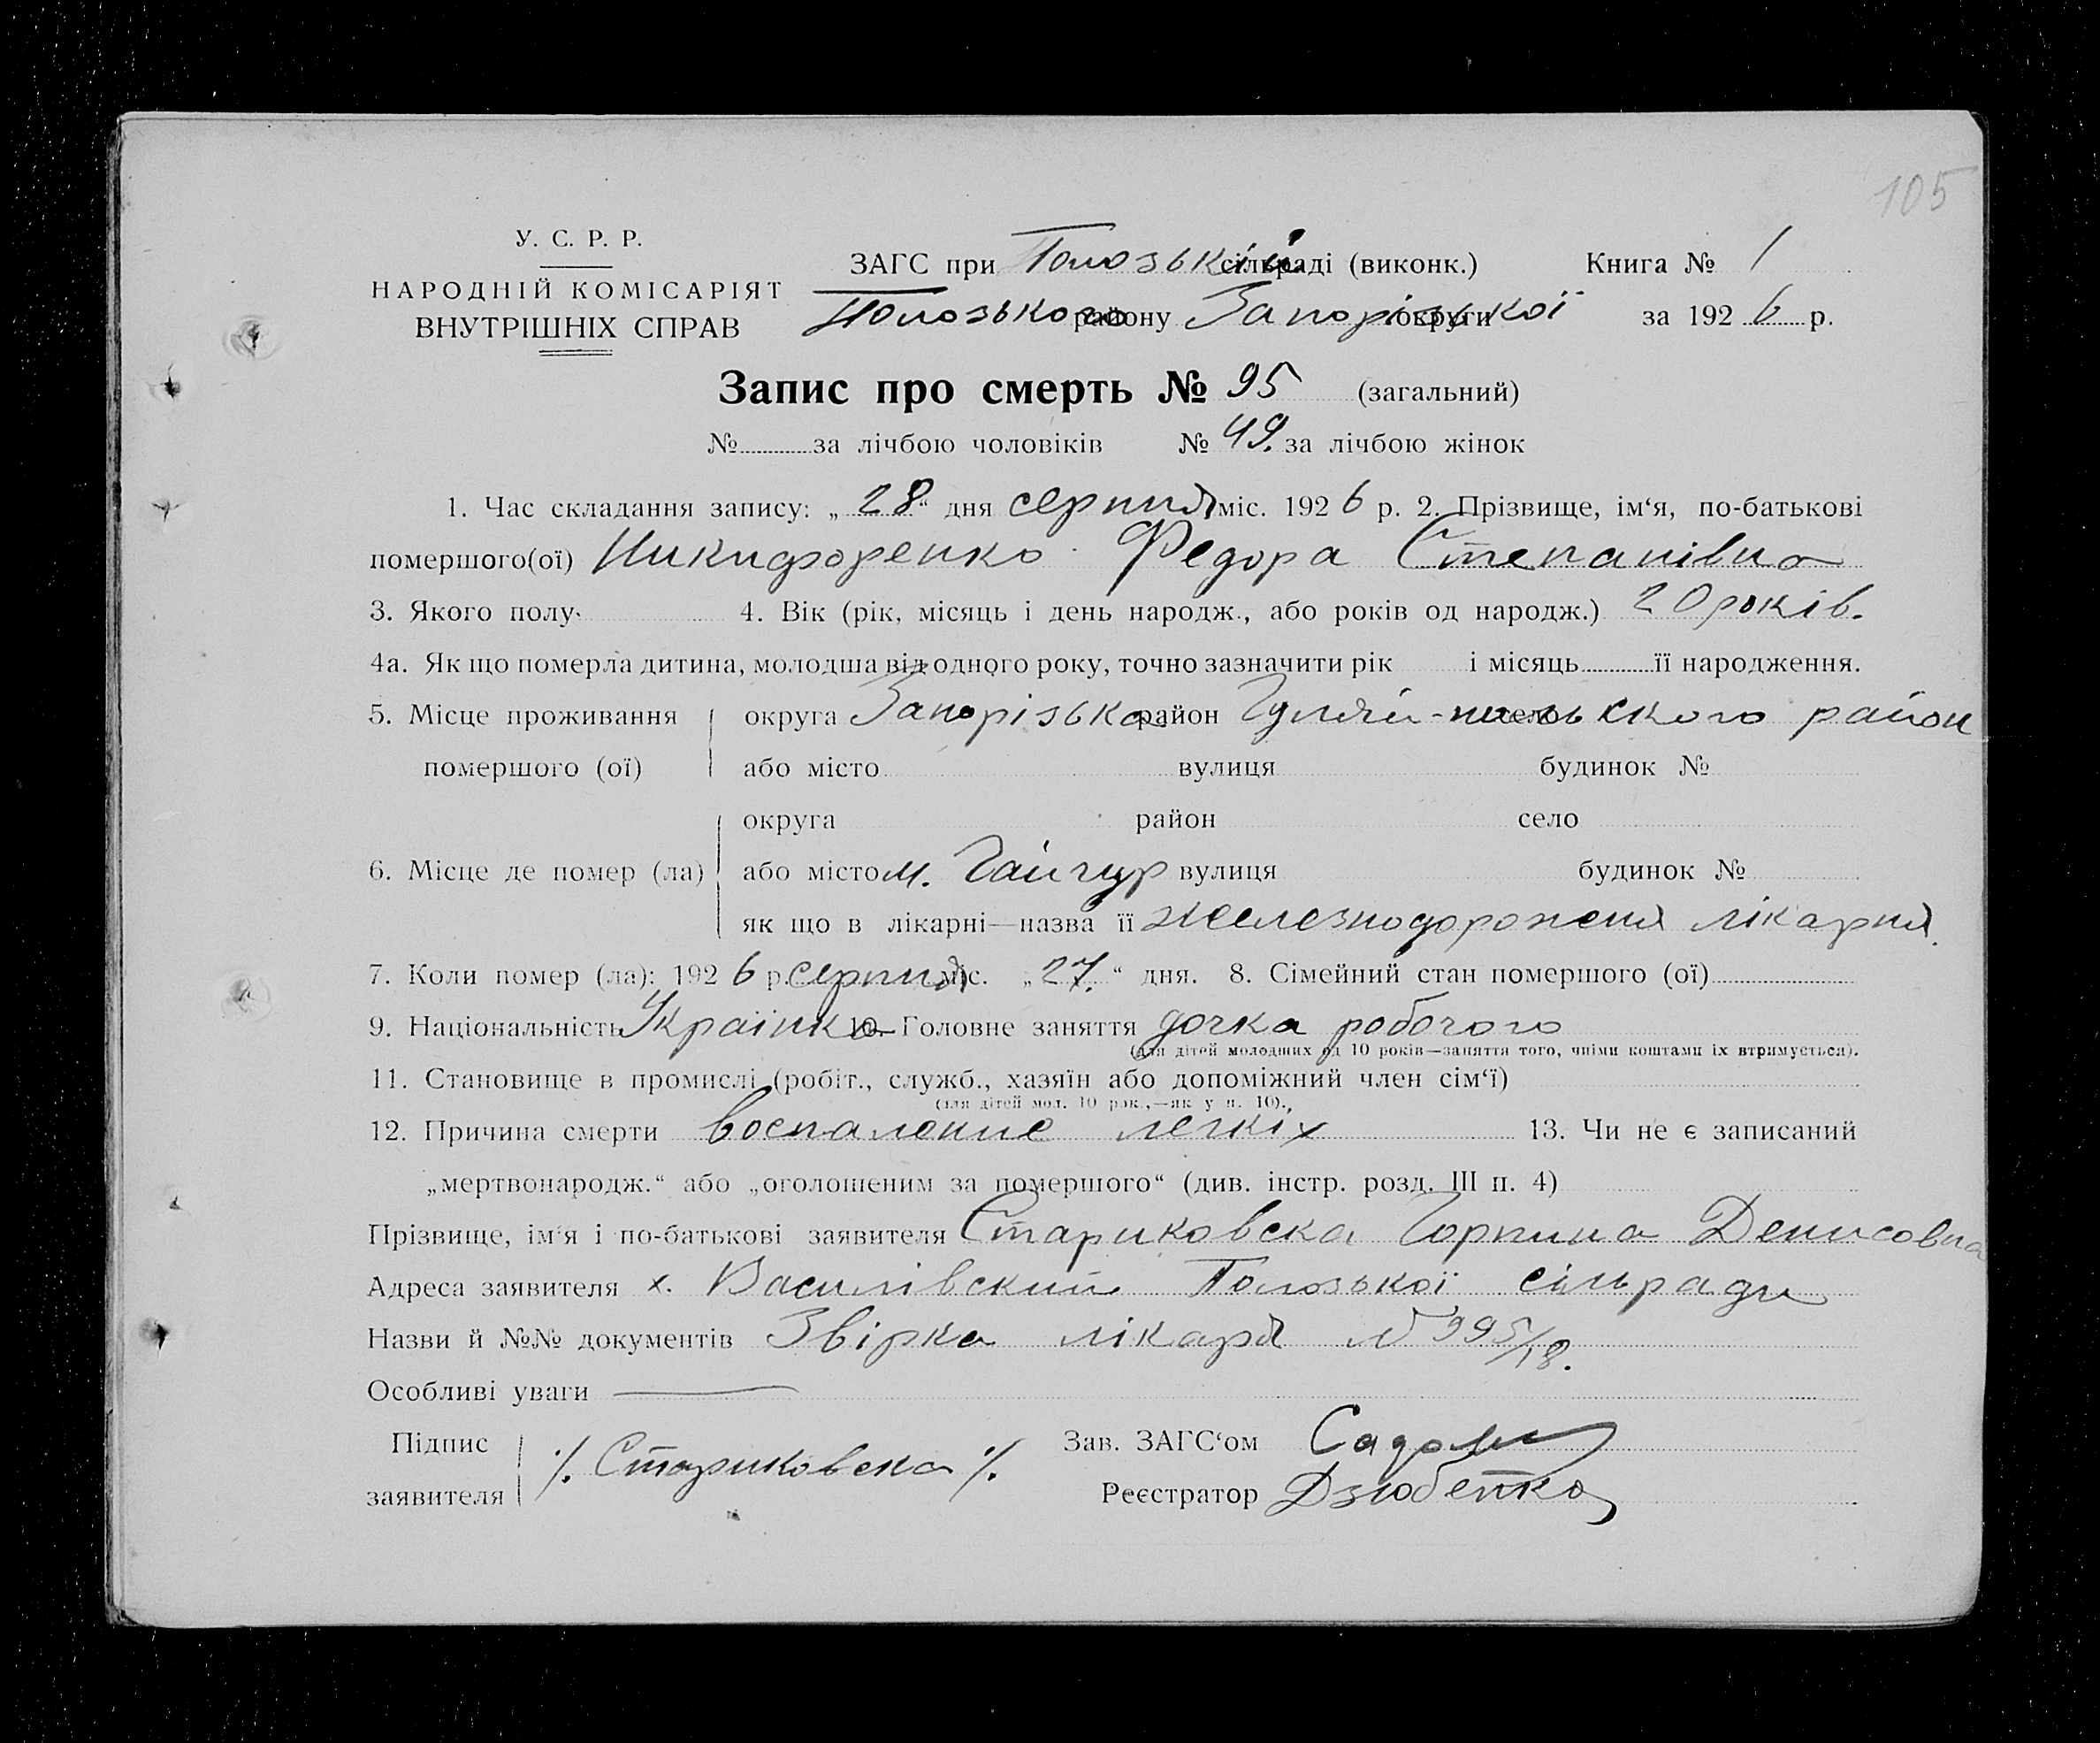 105
У. С. Р. Р.
НАРОДНІЙ КОМІСАРІЯТ
ВНУТРІШНІХ СПРАВ
ЗАГС при Полозькій сільраді (виконк.) Книга № 1
Полозького району Запорізької округи за 1926 р.
Запис про смерть № 95 (загальний)
№ за лічбою чоловіків № 49. за лічбою жінок
1. Час складання запису: „28“ дня серпня міс. 1926 р. 2. Прізвище, ім‘я, по-батькові
помершого(ої) Никифоренко Федора Степанівна
3. Якого полу 4. Вік (рік, місяць і день народж., або років од народж.) 20 років.
4а. Як що померла дитина, молодша від одного року, точно зазначити рік і місяць її народження.
5. Місце проживання округа Запорізька район Гуляй-пильського село район
помершого (ої) або місто вулиця будинок №
округа район село
6. Місце де помер (ла) або місто м. Гайчур вулиця будинок №
як що в лікарні—назва її железнодорожня лікарня.
7. Коли помер (ла): 1926 р. серпня міс. „27.“ дня. 8. Сімейний стан помершого (ої)
9. Національність Українка 10. Головне заняття дочка робочого
(для дітей молодших од 10 років—заняття того, чиїми коштами їх втримується).
11. Становище в промислі (робіт., служб., хазяїн або допоміжний член сім‘ї)
(для дітей мол. 10 рок.,—як у п. 10).
12. Причина смерти воспаление легкіх 13. Чи не є записаний
„мертвонародж.“ або „оголошеним за помершого“ (див. інстр. розд. III п. 4)
Прізвище, ім‘я і по-батькові заявителя Стариковска Горпина Денисовна
Адреса заявителя х. Василівский Полозької сільради
Назви й №№ документів Звірка лікаря № 995/18.
Особливі уваги
Підпис заявителя ·/. Стариковска ·/. Зав. ЗАГС‘ом
Реєстратор Дзюбенко